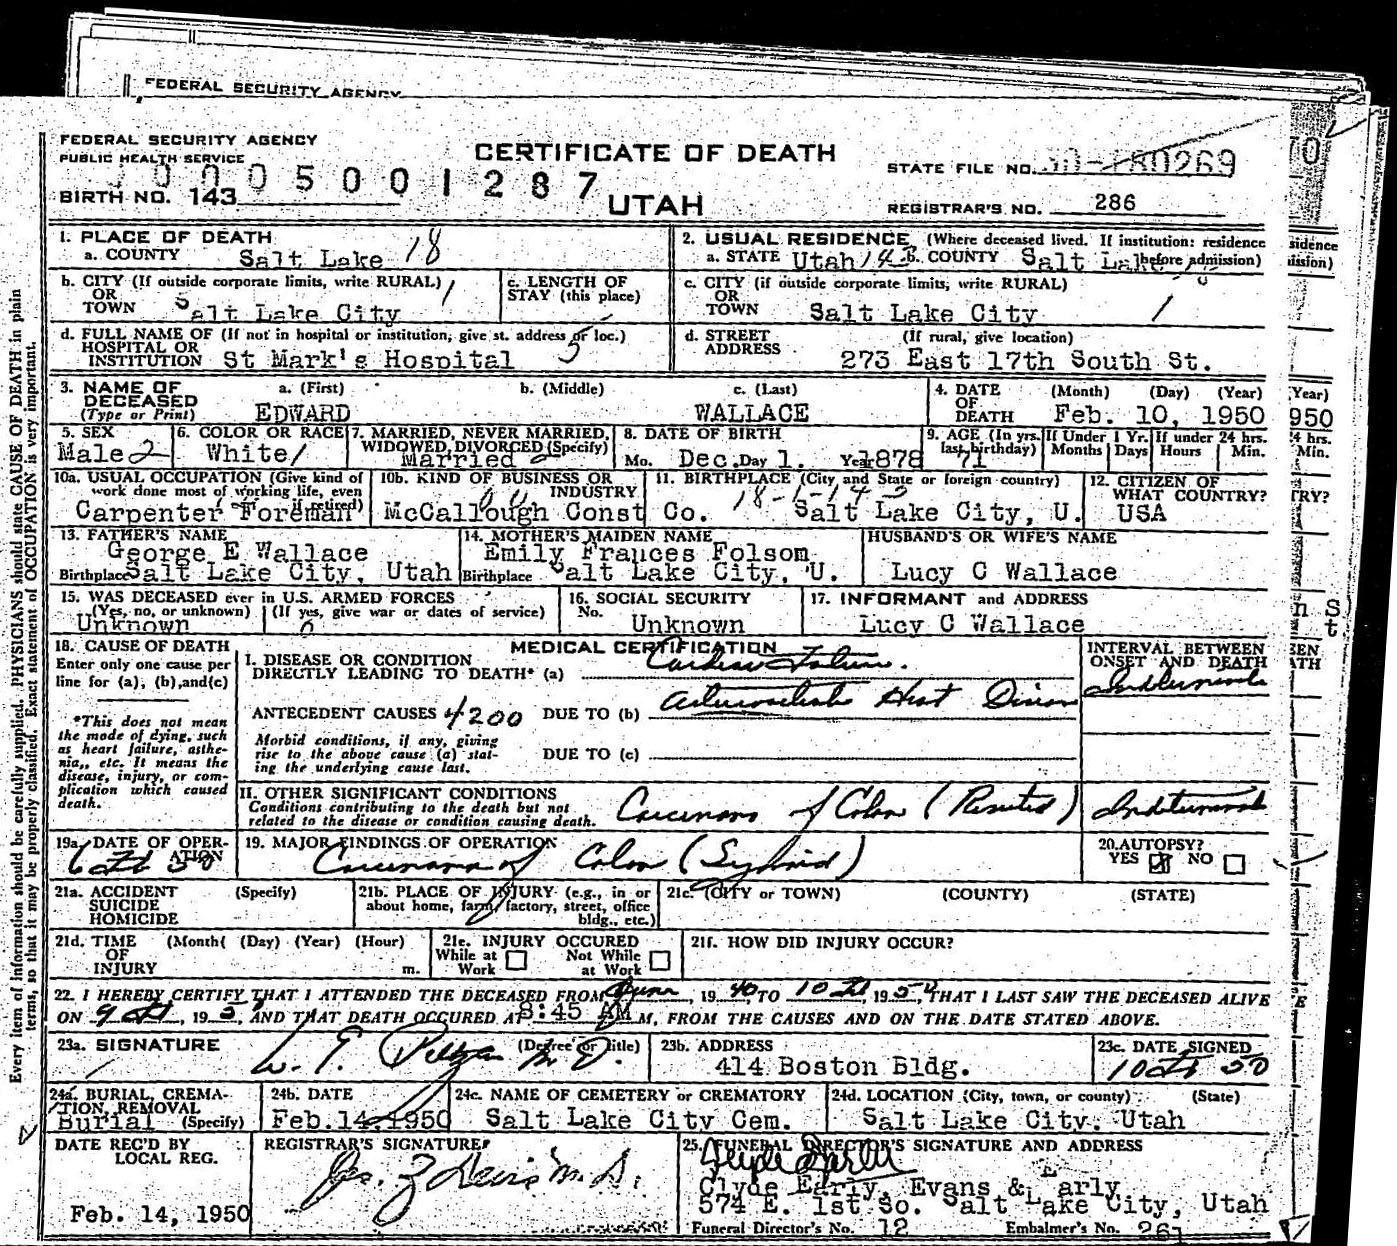 FEDERAL SECURITY AGENCY
FEDERAL SECURITY AGENCY
PUBLIC HEALTH SERVICE
CERTIFICATE OF DEATH
STATE FILE NO.
0005001287
BIRTH NO. 143
UTAH
REGISTRAR'S NO. 286
1. PLACE OF DEATH
a. COUNTY Salt Lake 18
2. USUAL RESIDENCE (Where deceased lived. If institution: residence before admission)
a. STATE Utah 143 b. COUNTY Salt Lake
b. CITY (If outside corporate limits, write RURAL)
OR
TOWN Salt Lake City 1
c. LENGTH OF
STAY (this place)
c. CITY (if outside corporate limits, write RURAL)
OR
TOWN Salt Lake City 1
d. FULL NAME OF (If not in hospital or institution, give st. address or loc.)
HOSPITAL OR
INSTITUTION St Mark's Hospital 5
d. STREET (If rural, give location)
ADDRESS 273 East 17th South St.
3. NAME OF DECEASED
(Type or Print)
a. (First) EDWARD
b. (Middle)
c. (Last) WALLACE
4. DATE OF DEATH (Month) (Day) (Year)
Feb. 10, 1950
5. SEX
Male 2
6. COLOR OR RACE
White 1
7. MARRIED, NEVER MARRIED,
WIDOWED, DIVORCED (Specify)
Married 2
8. DATE OF BIRTH
Mo. Dec. Day 1. Year 1878
9. AGE (In yrs. last birthday) 71
If Under 1 Yr. Months Days
If under 24 hrs. Hours Min.
10a. USUAL OCCUPATION (Give kind of
work done most of working life, even
if retired)
Carpenter Foreman
10b. KIND OF BUSINESS OR
INDUSTRY
McCallough Const Co.
11. BIRTHPLACE (City and State or foreign country)
18-1-143
Salt Lake City, U.
12. CITIZEN OF
WHAT COUNTRY?
USA
13. FATHER'S NAME
George E Wallace
Birthplace Salt Lake City, Utah
14. MOTHER'S MAIDEN NAME
Emily Frances Folsom
Birthplace Salt Lake City, U.
HUSBAND'S OR WIFE'S NAME
Lucy C Wallace
15. WAS DECEASED ever in U.S. ARMED FORCES
(Yes, no, or unknown) (If yes, give war or dates of service)
Unknown 0
16. SOCIAL SECURITY
No. Unknown
17. INFORMANT and ADDRESS
Lucy C Wallace
18. CAUSE OF DEATH
Enter only one cause per
line for (a), (b), and (c)
*This does not mean
the mode of dying, such
as heart failure, asthe-
nia,, etc. It means the
disease, injury, or com-
plication which caused
death.
MEDICAL CERTIFICATION
I. DISEASE OR CONDITION
DIRECTLY LEADING TO DEATH* (a) Cardiac Failure.
ANTECEDENT CAUSES 4200 DUE TO (b) Arteriosclerotic Heart Disease
Morbid conditions, if any, giving
rise to the above cause (a) stat-
ing the underlying cause last.
DUE TO (c)
INTERVAL BETWEEN
ONSET AND DEATH
Indeterminate
II. OTHER SIGNIFICANT CONDITIONS
Conditions contributing to the death but not
related to the disease or condition causing death.
Carcinoma of Colon (Resected) Indeterminate
19a. DATE OF OPER-
ATION
6 Feb 50
19. MAJOR FINDINGS OF OPERATION
Carcinoma of Colon (Sigmoid)
20. AUTOPSY?
YES NO
21a. ACCIDENT (Specify)
SUICIDE
HOMICIDE
21b. PLACE OF INJURY (e.g., in or
about home, farm, factory, street, office
bldg., etc.)
21c. (CITY or TOWN) (COUNTY) (STATE)
21d. TIME (Month( (Day) (Year) (Hour)
OF
INJURY m.
21e. INJURY OCCURED
While at Work Not While at Work
21f. HOW DID INJURY OCCUR?
22. I HEREBY CERTIFY THAT I ATTENDED THE DECEASED FROM June, 1940 TO 10 Feb 1950, THAT I LAST SAW THE DECEASED ALIVE
ON 9 Feb, 195, AND THAT DEATH OCCURED AT 8:45 AM M, FROM THE CAUSES AND ON THE DATE STATED ABOVE.
23a. SIGNATURE (Degree or Title)
M.D.
23b. ADDRESS
414 Boston Bldg.
23c. DATE SIGNED
10 Feb 50
24a. BURIAL, CREMA-
TION, REMOVAL
Burial (Specify)
24b. DATE
Feb. 14, 1950
24c. NAME OF CEMETERY or CREMATORY
Salt Lake City Cem.
24d. LOCATION (City, town, or county) (State)
Salt Lake City, Utah
DATE REC'D BY
LOCAL REG.
Feb. 14, 1950
REGISTRAR'S SIGNATURE
25. FUNERAL DIRECTOR'S SIGNATURE AND ADDRESS
Clyde Early, Evans & Early
574 E. 1st So. Salt Lake City, Utah
Funeral Director's No. 12 Embalmer's No. 261
Every item of information should be carefully supplied. PHYSICIANS should state CAUSE OF DEATH in plain
terms, so that it may be properly classified. Exact statement of OCCUPATION is very important.